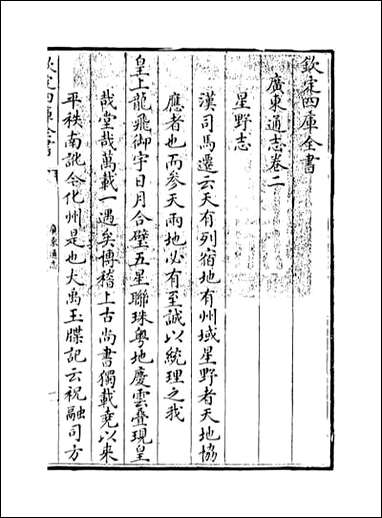 欽定四庫全書
廣東通志卷二
星野志
漢司馬遷云天有列宿地有州域星野者天地協
應者也而參天兩地必有至誠以統理之我
皇上龍飛御宇日月合璧五星聯珠粵地慶雲疊現皇
哉堂哉萬載一遇矣博稽上古尚書獨載堯以來
平秩南訛今化州是也大禹玉牒記云祝融司方
欽定四庫全書
廣東通志